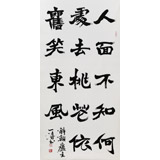 人面不知何
處去桃花依
舊笑東風